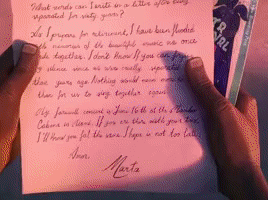 What words can I write in a letter after being
separated for sixty years?
As I prepare for retirement, I have been flooded
with memories of the beautiful music we once
made together. I don't know if you can
my silence since we were
this years ago. Nothing would
than for us to sing together again.
My farewell concert is June 16th at the
in If you are there with your
I'll know you feel the same. I hope is not too late.
Love,
Marta